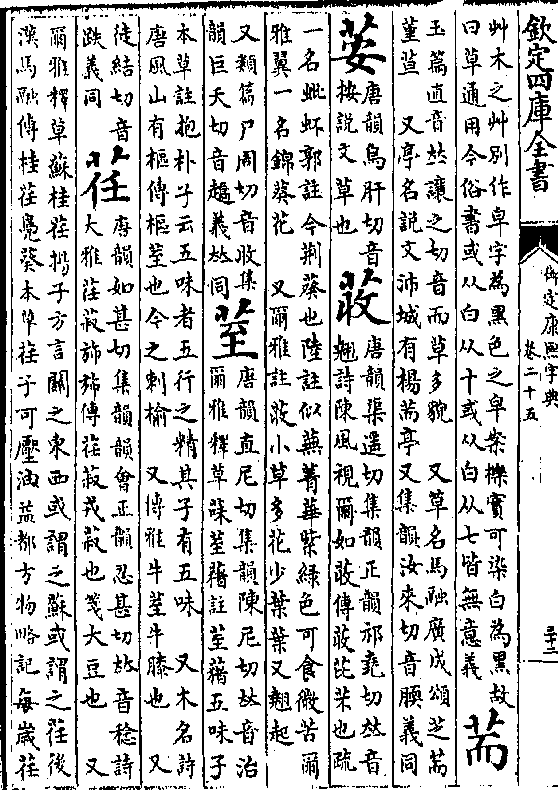 欽定四庫全書
御定康熙字典
卷二十五
三十二
艸木之艸別作皁字為黑色之皁案櫟實可染白為黑故
曰草通用今俗書或从白从十或从白从七皆無意義
荋
玉篇直音𠀤讓之切音而草多貌 又草名馬融廣成頌芝荋
菫荁 又亭名說文沛城有楊荋亭又集韻汝來切音腝義同
荌
唐韻烏肝切音
按說文草也
荍
唐韻渠遥切集韻正韻祁堯切𠀤音
翹詩陳風視爾如荍傳荍芘芣也疏
一名蚍衃郭註今荆葵也陸註似蕪菁華紫緑色可食微苦爾
雅翼一名錦葵花 又爾雅註荍小草多花少葉葉又翹起
又類篇尸周切音收集
韻巨夭切音趫義𠀤同
荎
唐韻直尼切集韻陳尼切𠀤音治
爾雅釋草菋荎藸註荎藸五味子
本草註抱朴子云五味者五行之精其子有五味 又木名詩
唐風山有樞傳樞荎也今之刺榆 又博雅牛荎牛膝也 又
徒結切音
跌義同
荏
唐韻如甚切集韻韻會正韻忍甚切𠀤音稔詩
大雅荏菽斾斾傳荏菽戎菽也箋大豆也 又
爾雅釋草蘇桂荏揚子方言關之東西或謂之蘇或謂之荏後
漢馬融傳桂荏鳧葵本草荏子可壓油益都方物略記每歲荏